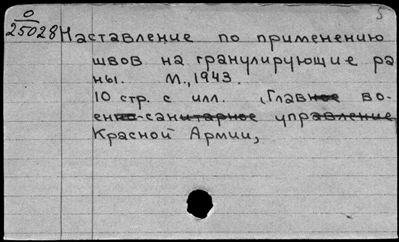 0
25028 Наставление по применению
швов на гранулирующие ра
ны. М., 1943.
10 стр. с илл. (Главное во-
енно-санитарное управление
Красной Армии,